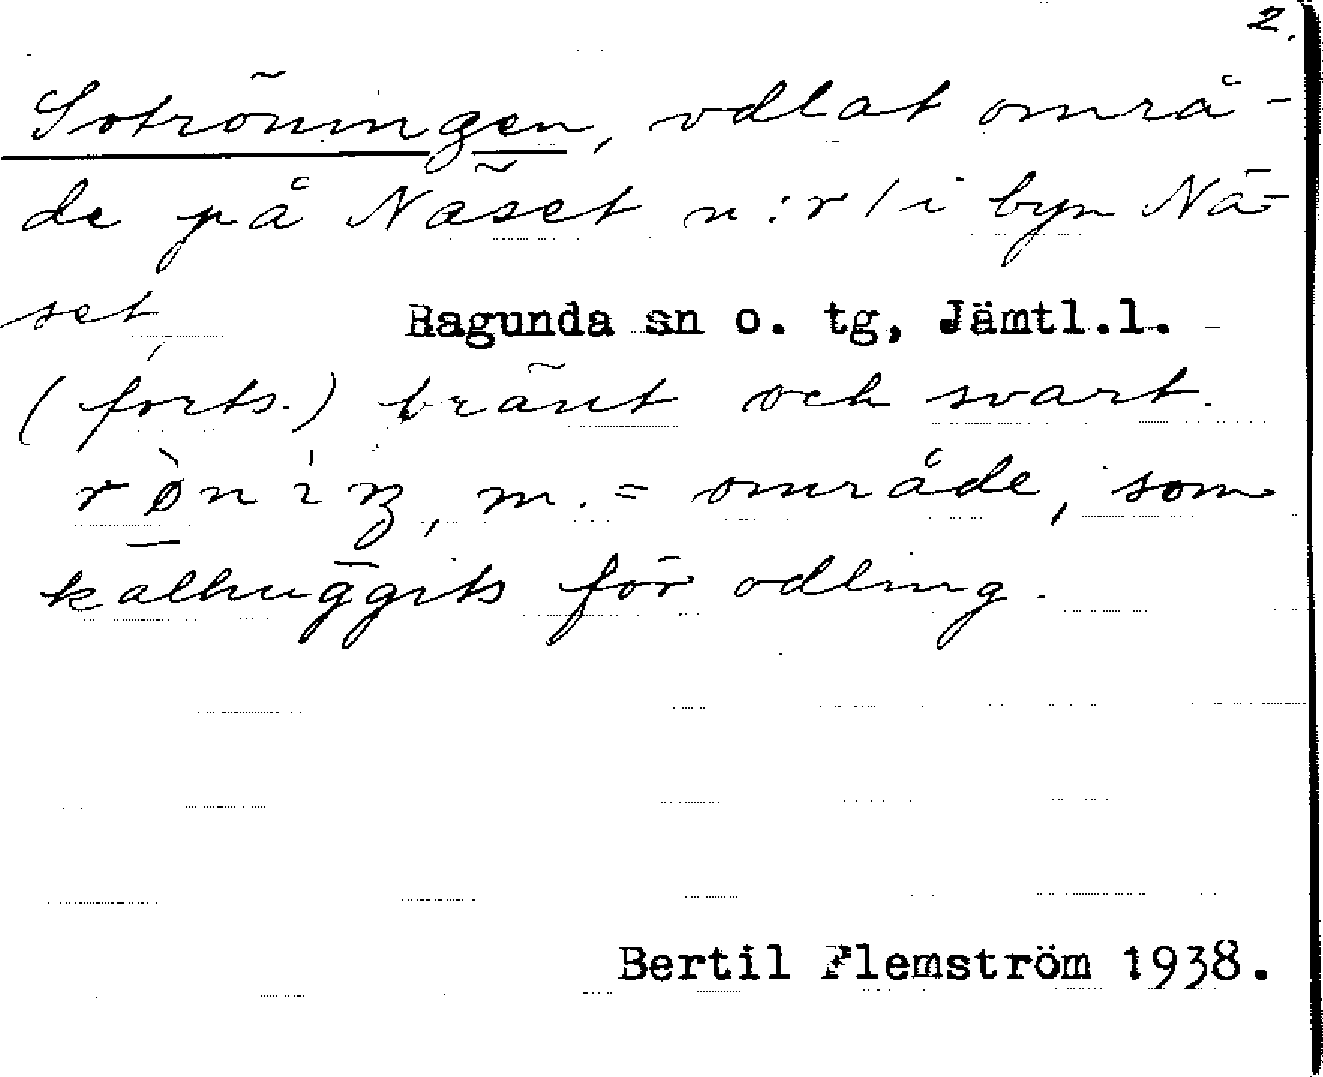 2.
Sotröningen, odlat områ-
de på Näset n:r 1 i byn Nä-
set,
Ragunda sn o. tg, Jämtl.l.
(forts.) bränt och svart.
m. = område, som
kalhuggits för odling.
Bertil Flemström 1938.